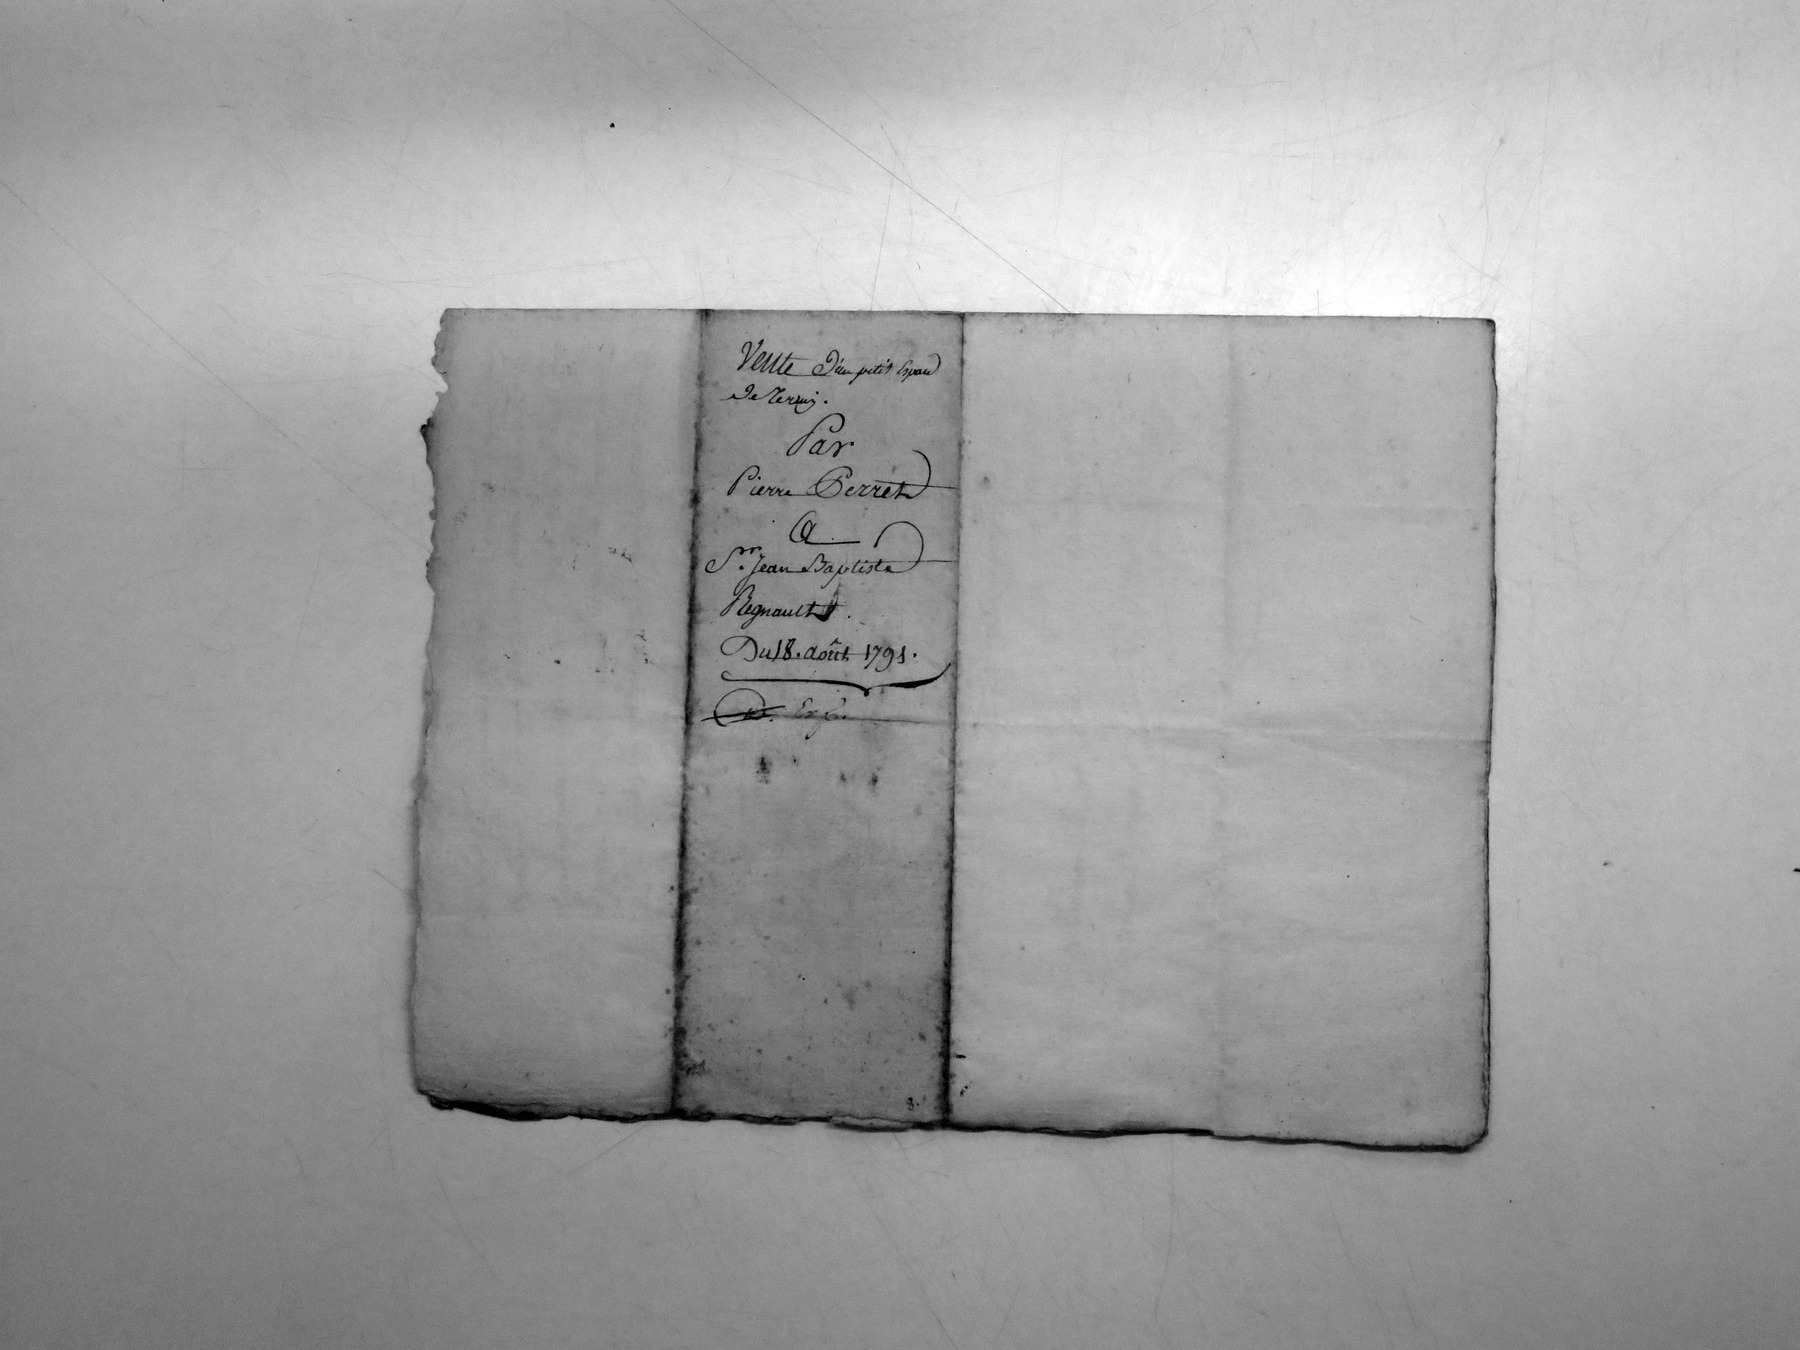 Vente D'un petit Espace
de Terrein.
Par
Pierre Perret
A
Sr. Jean Baptiste
Regnault.
Du 18. août 1791.
8.